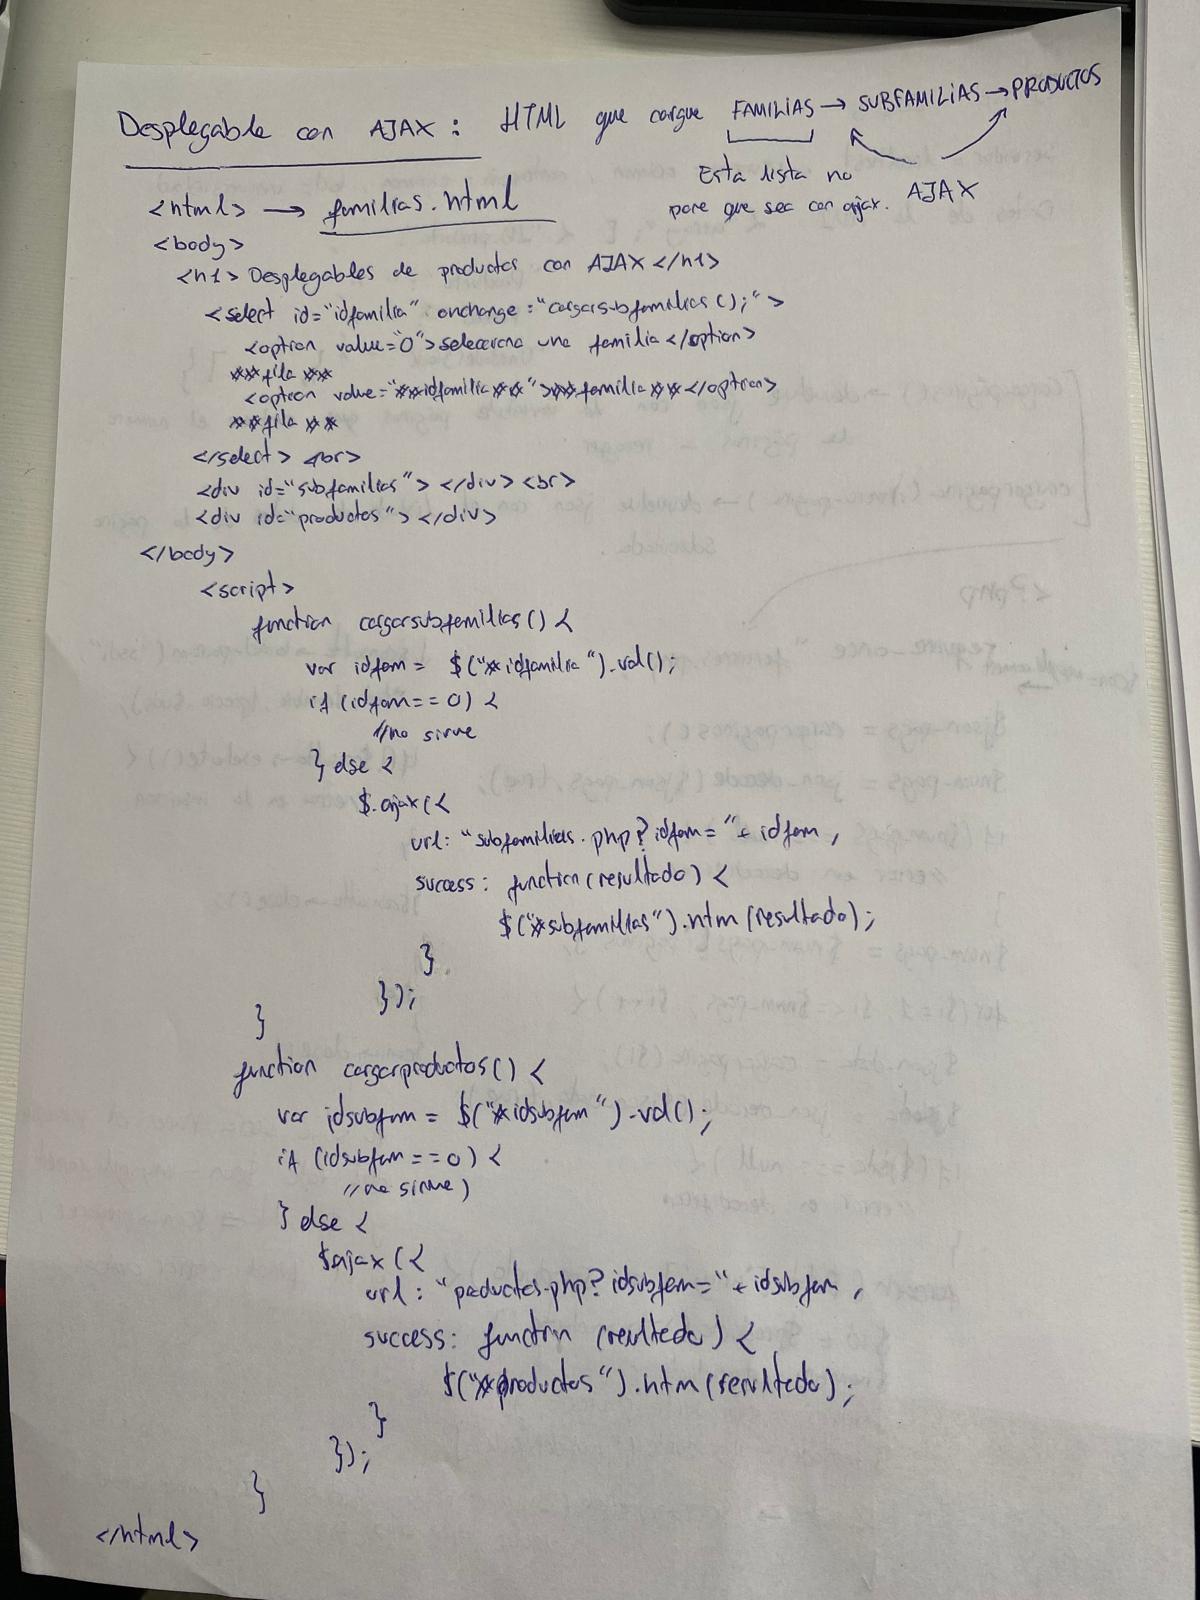 Desplegable con AJAX: HTML que cargue FAMILIAS → SUBFAMILIAS → PRODUCTOS
Esta lista no
pone que sea con ajax.
AJAX
<html> → familias.html
<body>
<h1> Desplegables de productos con AJAX </h1>
<select id="idfamilia" onchange="cargarsubfamilias();">
<option value="0">selecciona una familia</option>
##fila##
<option value="##idfamilia##">##familia##</option>
##fila##
</select> <br>
<div id="subfamilias"> </div> <br>
<div id="productos"> </div>
</body>
<script>
function cargarsubfamilias() {
var idfam = $("#idfamilia").val();
if (idfam==0) {
//no sirve
} else {
$.ajax({
url: "subfamilias.php?idfam="+ idfam,
success: function(resultado) {
$("#subfamilias").htm(resultado);
}
});
}
function cargarproductos() {
var idsubfam = $("#idsubfam").val();
if (idsubfam==0) {
//no sirve)
} else {
$ajax({
url: "poductos.php?idsubfam="+ idsubfam,
success: function (resultado) {
$("#productos").htm(resultado);
}
});
}
</html>